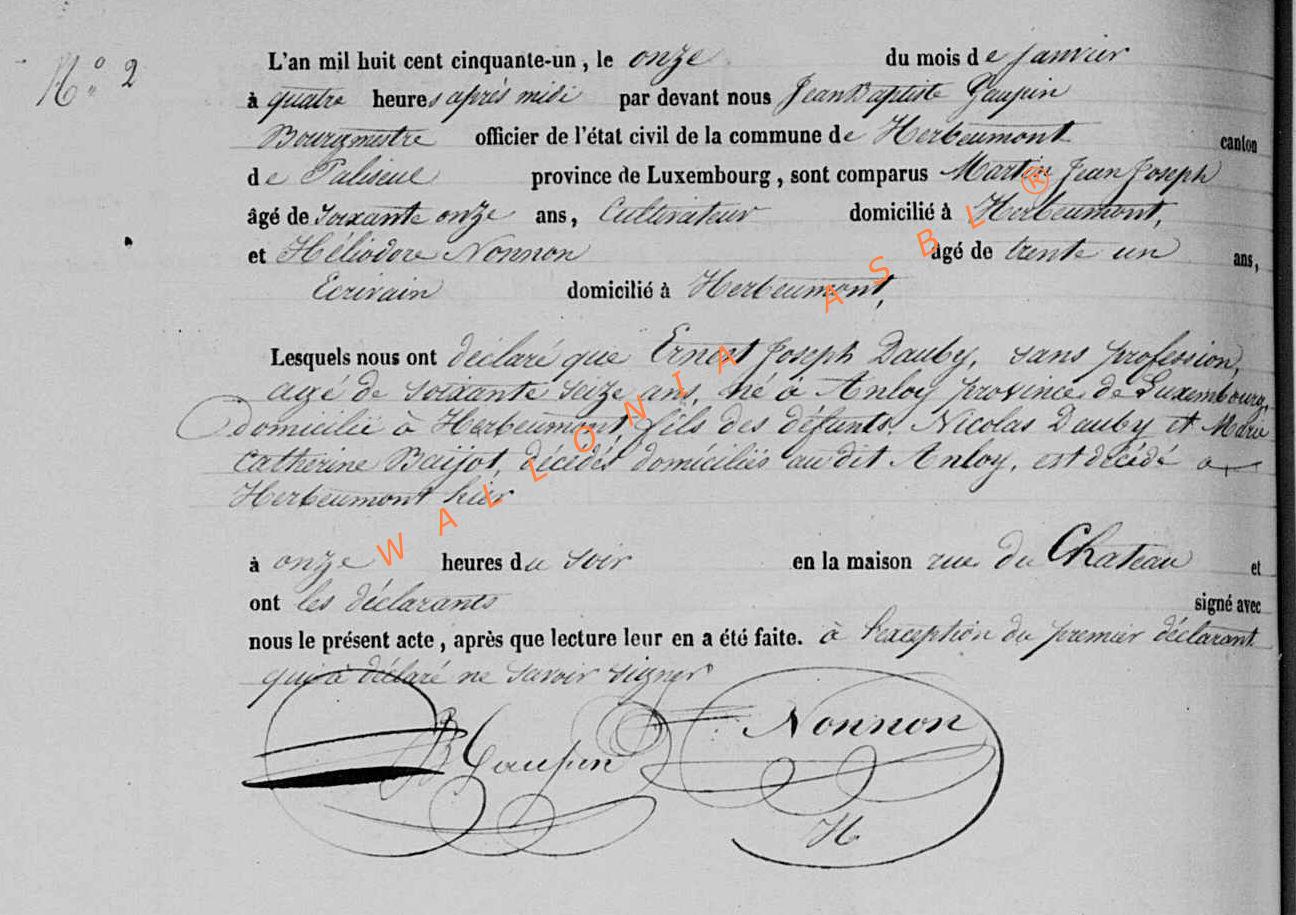 N° 2
L'an mil huit cent cinquante-un, le onze du mois de janvier
à quatre heures après midi par devant nous Jean Baptiste Gaupin
Bourgmestre officier de l'état civil de la commune de Herbeumont canton
de Paliseul province de Luxembourg, sont comparus Martin Jean Joseph
âgé de soixante onze ans, Cultivateur domicilié à Herbeumont,
et Héliodore Nonnon âgé de trente un ans,
Ecrivain domicilié à Herbeumont,
Lesquels nous ont déclaré que Ernest Joseph Dauby, sans profession,
agé de soixante seize ans, né à Anloy province de Luxembourg,
domicilié à Herbeumont, fils des défunts Nicolas Dauby et Marie
Catherine Baijot, décédés domiciliés audit Anloy, est décédé a
Herbeumont hier
à onze heures du soir en la maison rue du Chateau et
ont les déclarants signé avec
nous le présent acte, après que lecture leur en a été faite. à l'exception du premier déclarant
qui à déclaré ne savoir signer
JB Gaupin Nonnon
H
WALLONIA ASBL ®